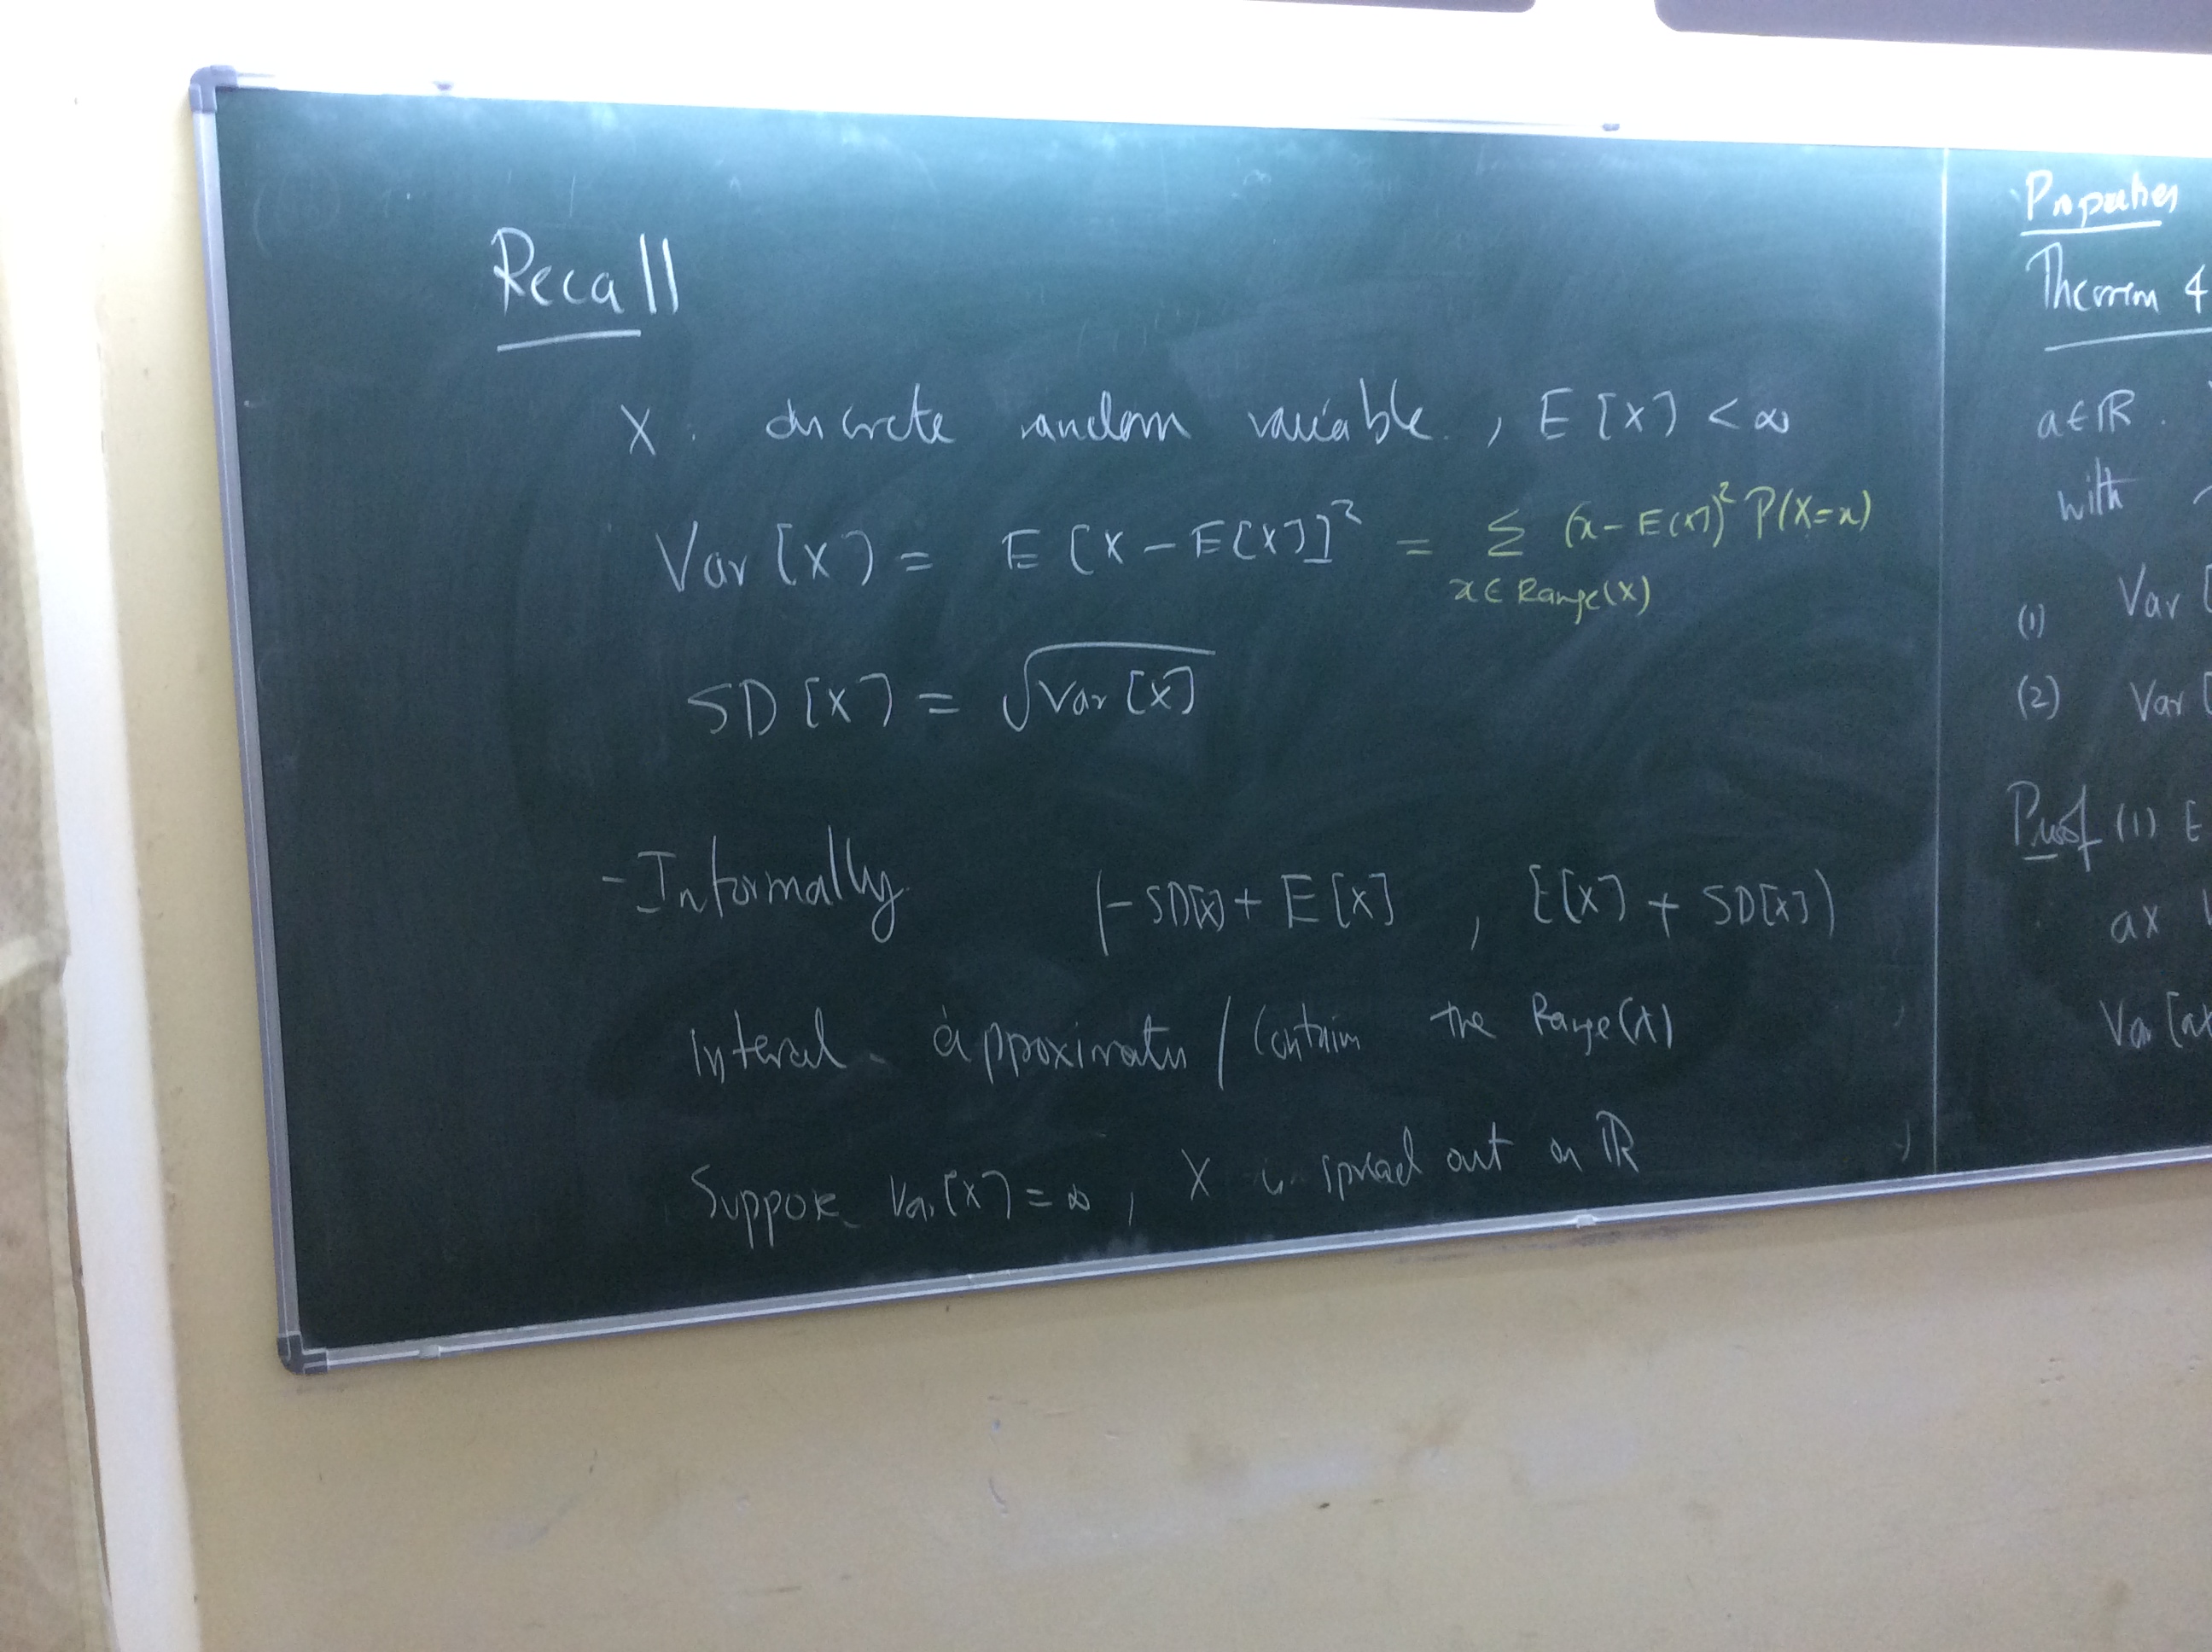 Recall
X . discrete random variable. , E[X] < ∞
Var[X] = E[X - E[X]]² = Σ (x - E[X])² P(X=x)
x ∈ Range(X)
SD[X] = √Var[X]
- Informally (-SD[X] + E[X] , E[X] + SD[X])
Interal approximates / contains the Range(X)
Suppose Var[X] = ∞ , X is spread out on ℝ
Properties
Theorem 4
a ∈ ℝ .
with
(1) Var [
(2) Var [
Proof (1) E
ax
Var [ax